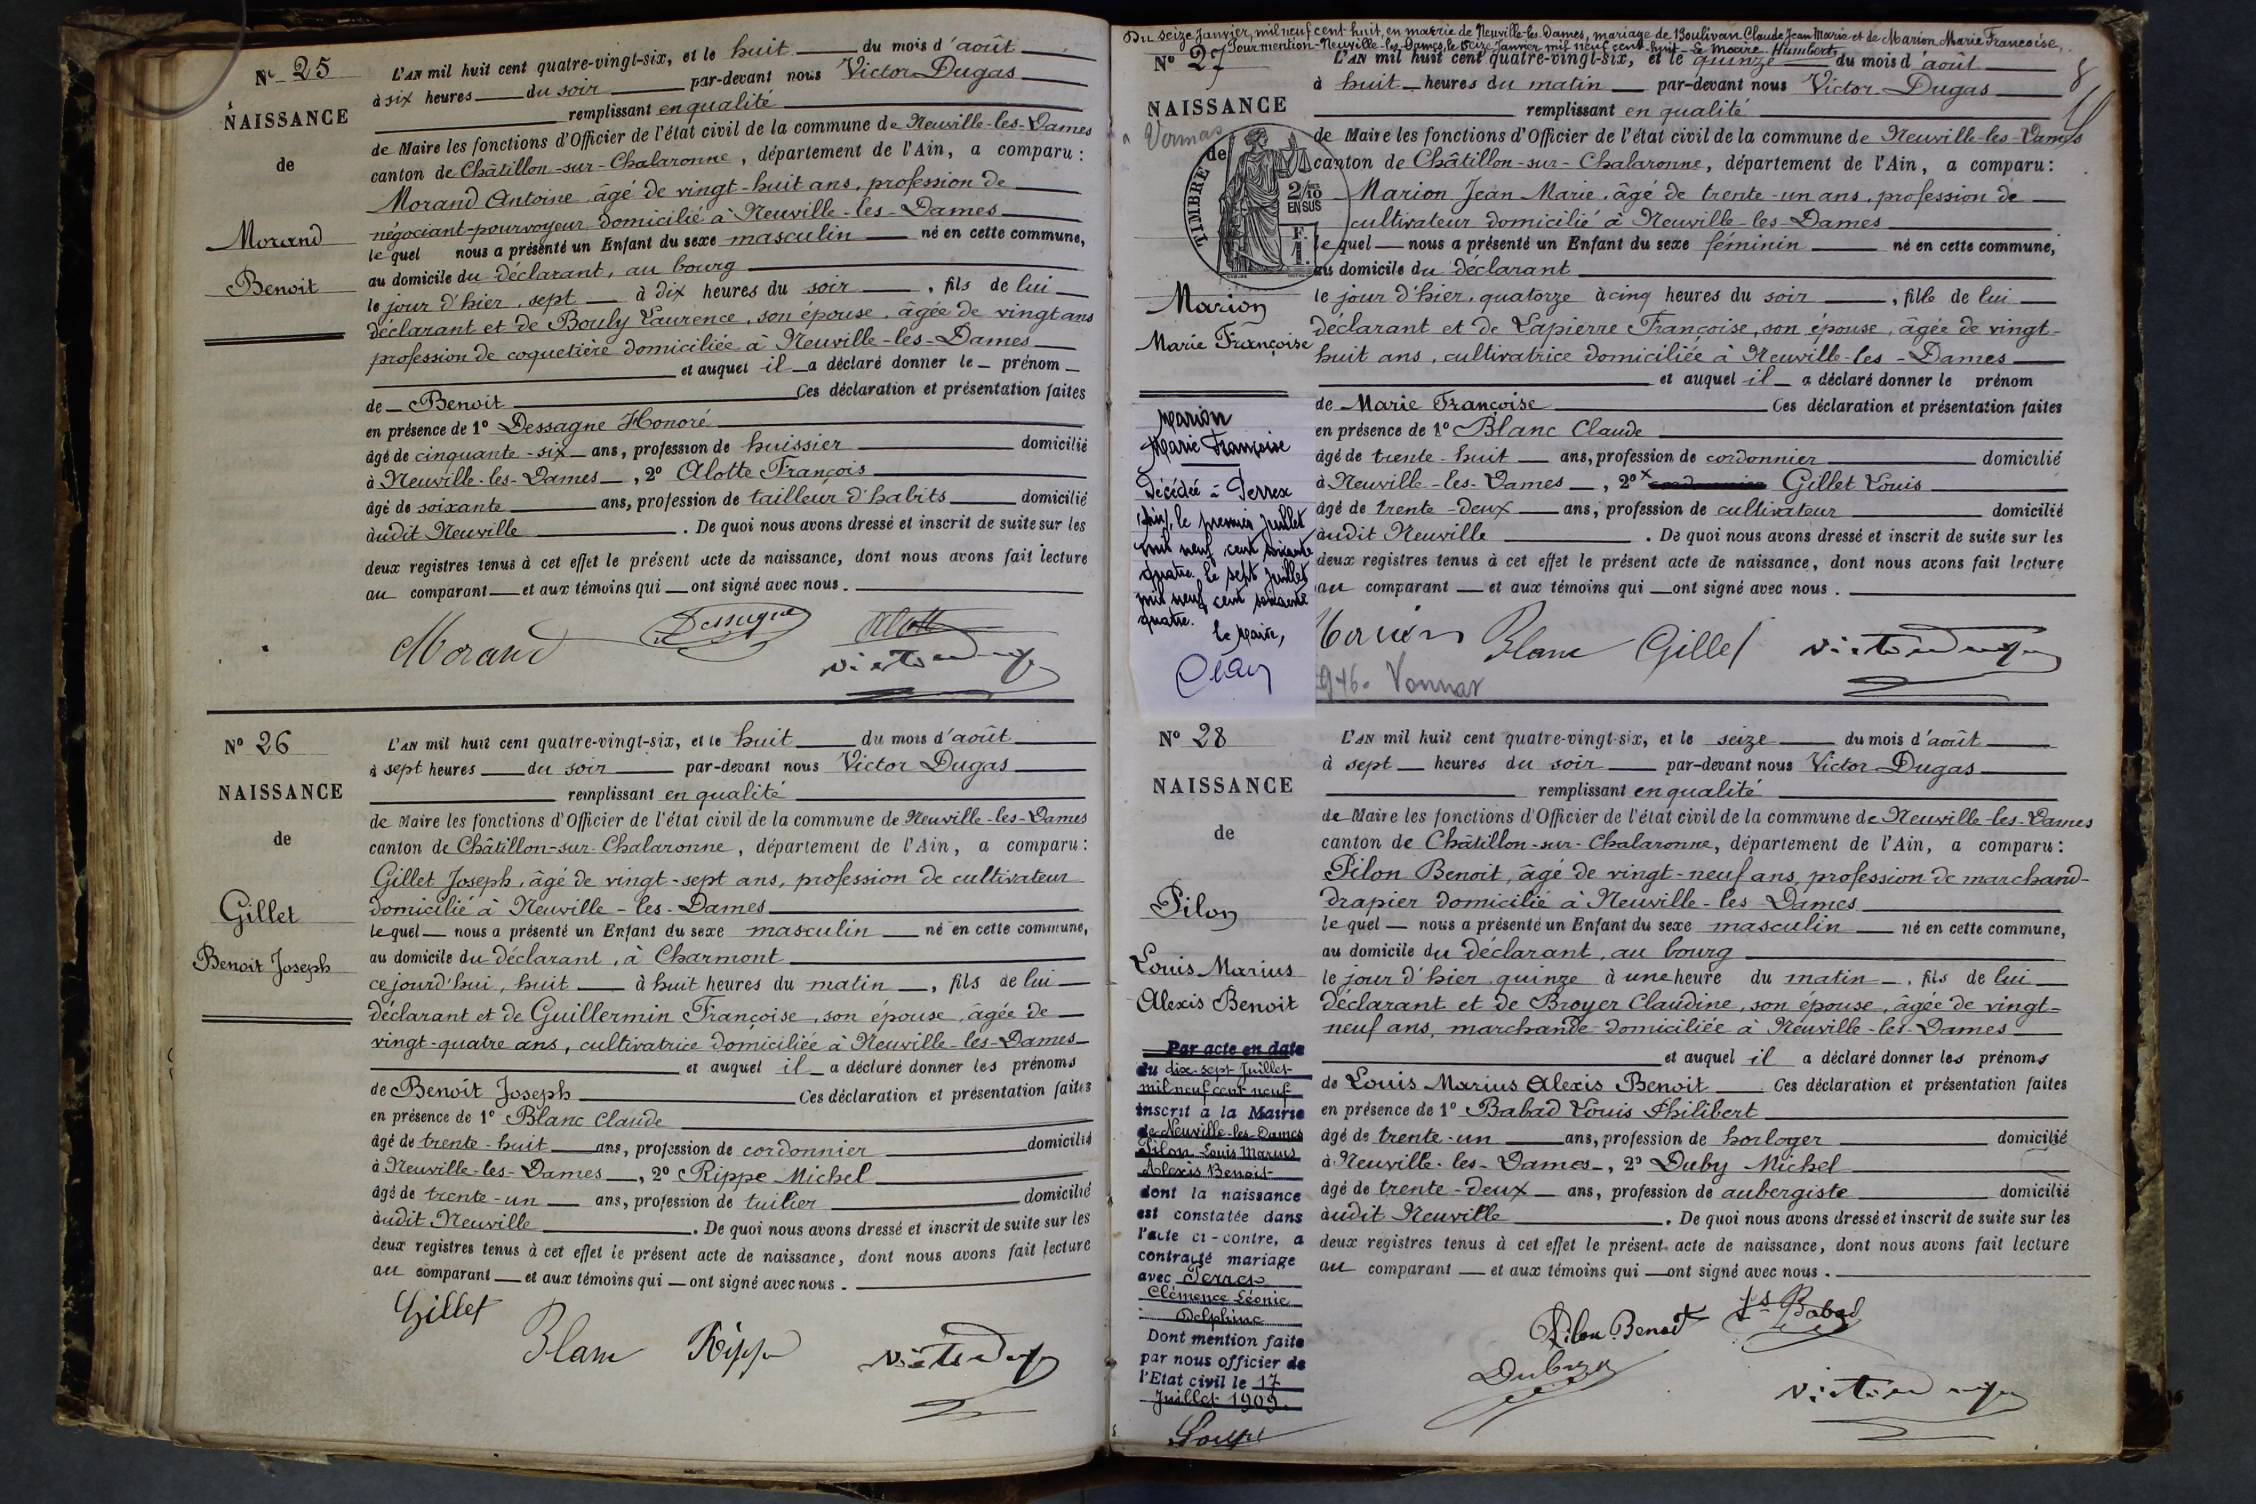 N° 25
NAISSANCE
de
Morand
Benoit
L'AN mil huit cent quatre-vingt-six, et le huit du mois d'août
à six heures du soir par-devant nous Victor Dugas
remplissant en qualité
de Maire les fonctions d'Officier de l'état civil de la commune de Neuville-les-Dames
canton de Châtillon-sur-Chalaronne, département de l'Ain, a comparu :
Morand Antoine, âgé de vingt-huit ans, profession de
négociant-pourvoyeur domicilié à Neuville-les-Dames
lequel nous a présenté un Enfant du sexe masculin né en cette commune,
au domicile du déclarant, au bourg
le jour d'hier, sept à dix heures du soir, fils de lui
déclarant et de Bouly Laurence, son épouse, âgée de vingt ans
profession de coquetière domiciliée à Neuville-les-Dames
et auquel il a déclaré donner le prénom
de Benoit Ces déclaration et présentation faites
en présence de 1° Dessagne Honoré
âgé de cinquante-six ans, profession de huissier domicilié
à Neuville-les-Dames, 2° Alotte François
âgé de soixante ans, profession de tailleur d'habits domicilié
audit Neuville. De quoi nous avons dressé et inscrit de suite sur les
deux registres tenus à cet effet le présent acte de naissance, dont nous avons fait lecture
au comparant et aux témoins qui ont signé avec nous.
Morand Dessagne Alotte
Victor Dugas
N° 26
NAISSANCE
de
Gillet
Benoit Joseph
L'AN mil huit cent quatre-vingt-six, et le huit du mois d'août
à sept heures du soir par-devant nous Victor Dugas
remplissant en qualité
de Maire les fonctions d'Officier de l'état civil de la commune de Neuville-les-Dames
canton de Châtillon-sur-Chalaronne, département de l'Ain, a comparu :
Gillet Joseph, âgé de vingt-sept ans, profession de cultivateur
domicilié à Neuville-les-Dames
lequel nous a présenté un Enfant du sexe masculin né en cette commune,
au domicile du déclarant, à Charmont
ce jourd'hui, huit à huit heures du matin, fils de lui
déclarant et de Guillermin Françoise, son épouse, âgée de
vingt-quatre ans, cultivatrice domiciliée à Neuville-les-Dames
et auquel il a déclaré donner les prénoms
de Benoit Joseph Ces déclaration et présentation faites
en présence de 1° Blanc Claude
âgé de trente-huit ans, profession de cordonnier domicilié
à Neuville-les-Dames, 2° Rippe Michel
âgé de trente-un ans, profession de tuilier domicilié
audit Neuville. De quoi nous avons dressé et inscrit de suite sur les
deux registres tenus à cet effet le présent acte de naissance, dont nous avons fait lecture
au comparant et aux témoins qui ont signé avec nous.
Gillet Blanc Rippe Victor Dugas
Du seize Janvier, mil neuf cent huit, en mairie de Neuville-les-Dames, mariage de Boulivan Claude Jean Marie et de Marion Marie Françoise.
Pour mention - Neuville-les-Dames, le seize Janvier mil neuf cent huit - Le Maire Humbert
N° 27
NAISSANCE
Vonnas
de
TIMBRE
2/10
EN SUS
F.
1.
Marion
Marie Françoise
Marion
Marie Françoise
Décédée à Perrex
(Ain), le premier juillet
mil neuf cent soixante
quatre. Le sept juillet
mil neuf cent soixante
quatre.
Le Maire,
L'AN mil huit cent quatre-vingt-six, et le quinze du mois d'août
à huit heures du matin par-devant nous Victor Dugas
remplissant en qualité
de Maire les fonctions d'Officier de l'état civil de la commune de Neuville-les-Dames
canton de Châtillon-sur-Chalaronne, département de l'Ain, a comparu :
Marion Jean Marie, âgé de trente-un ans, profession de
cultivateur domicilié à Neuville-les-Dames
lequel nous a présenté un Enfant du sexe féminin né en cette commune,
au domicile du déclarant
le jour d'hier, quatorze à cinq heures du soir, fille de lui
déclarant et de Lapierre Françoise, son épouse, âgée de vingt-
huit ans, cultivatrice domiciliée à Neuville-les-Dames
et auquel il a déclaré donner le prénom
de Marie Françoise Ces déclaration et présentation faites
en présence de 1° Blanc Claude
âgé de trente-huit ans, profession de cordonnier domicilié
à Neuville-les-Dames, 2° x Gillet Louis
âgé de trente-deux ans, profession de cultivateur domicilié
audit Neuville. De quoi nous avons dressé et inscrit de suite sur les
deux registres tenus à cet effet le présent acte de naissance, dont nous avons fait lecture
au comparant et aux témoins qui ont signé avec nous.
Marion Blanc Gillet Victor Dugas
946. Vonnas
N° 28
NAISSANCE
de
Pilon
Louis Marius
Alexis Benoit
Par acte en date
du dix-sept Juillet
mil neuf cent neuf
inscrit à la Mairie
de Neuville-les-Dames
Pilon Louis Marius
Alexis Benoit
dont la naissance
est constatée dans
l'acte ci-contre, a
contracté mariage
avec Perret
Clémence Léonie
Delphine
Dont mention faite
par nous officier de
l'Etat civil le 17
Juillet 1909.
L'AN mil huit cent quatre-vingt-six, et le seize du mois d'août
à sept heures du soir par-devant nous Victor Dugas
remplissant en qualité
de Maire les fonctions d'Officier de l'état civil de la commune de Neuville-les-Dames
canton de Châtillon-sur-Chalaronne, département de l'Ain, a comparu :
Pilon Benoit, âgé de vingt-neuf ans, profession de marchand-
drapier domicilié à Neuville-les-Dames
lequel nous a présenté un Enfant du sexe masculin né en cette commune,
au domicile du déclarant, au bourg
le jour d'hier quinze à une heure du matin, fils de lui
déclarant et de Broyer Claudine, son épouse, âgée de vingt-
neuf ans, marchande domiciliée à Neuville-les-Dames
et auquel il a déclaré donner les prénoms
de Louis Marius Alexis Benoit Ces déclaration et présentation faites
en présence de 1° Babad Louis Philibert
âgé de trente-un ans, profession de horloger domicilié
à Neuville-les-Dames, 2° Duby Michel
âgé de trente-deux ans, profession de aubergiste domicilié
audit Neuville. De quoi nous avons dressé et inscrit de suite sur les
deux registres tenus à cet effet le présent acte de naissance, dont nous avons fait lecture
au comparant et aux témoins qui ont signé avec nous.
Pilon Benoit Ls Babad
Duby
Victor Dugas